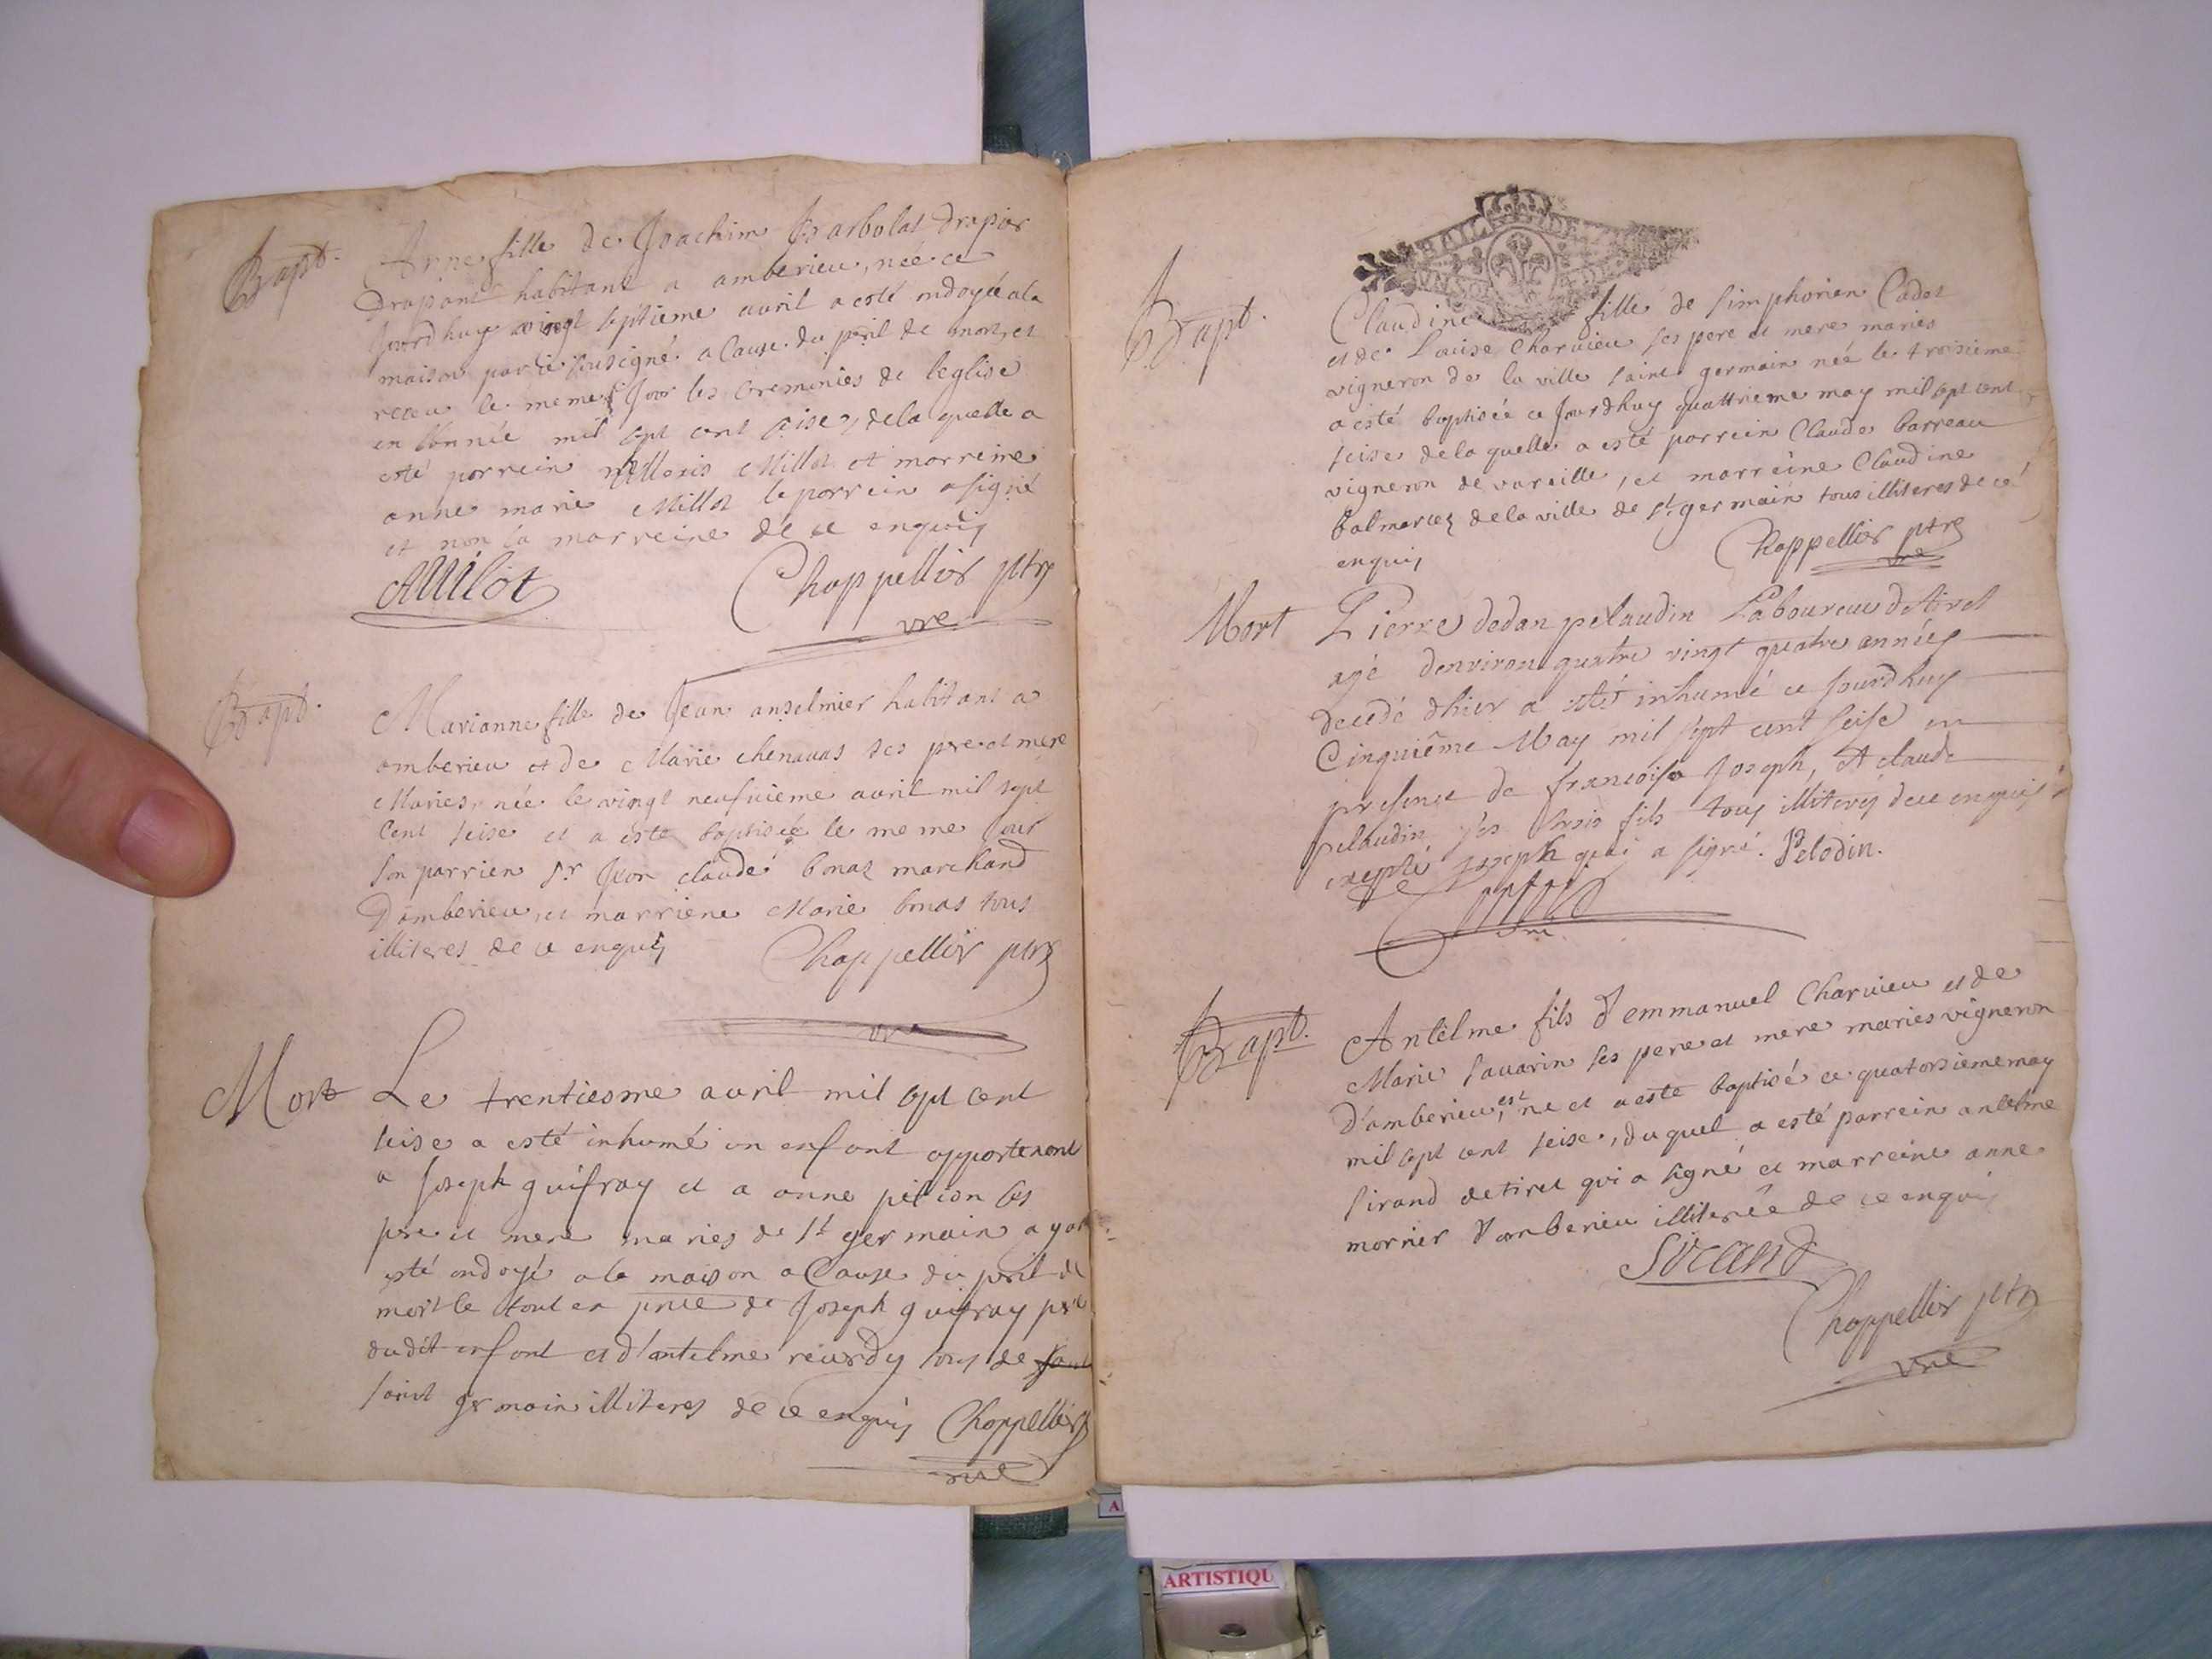 Bapt.
Anne fille de Joachim Barbolat drapier
drapant habitant a amberieu, née ce
Jourdhuy vingt septieme avril a esté ondoyé a la
maison par le sousigné a Cause du peril de mort, et
receu le meme Jour les ceremonies de leglise
en lannée mil sept cent seise, de la quelle a
esté porrein Millot et morreine
anne marie Millot le porrein a signé
et non la morreine de ce enquis
AMilot
Chappellier ptre
vre
Bapt.
Marianne fille de Jean anselmier habitant a
amberieu et de Marie chenavas ses pere et mere
Maries, née le vingt neufvieme avril mil sept
Cent seise et a este baptisée le meme Jour
son parrien Sr Jean claude bonaz marchand
Damberieu, et marriene Marie bonas tous
illiteres de ce enquis
Chappellier ptre
vre
Mort
Le trentiesme avril mil sept cent
seise a esté inhumé un enfant appartenant
a Joseph guifray et a anne ses
pere et mere maries de St germain ayant
esté ondoyé a la maison a Cause du peril de
mort le tout en pnce de Joseph guifray pere
dudit enfant et d'antelme reurdy tous de
saint germain illiteres de ce enquis Chappellier
vre
Bapt.
Claudine fille de simphorien Cadet
et de Louise Charvieu ses pere et mere maries
vigneron de la ville saint germain née le troisieme
a esté baptisée ce Jourdhuy quattrieme may mil sept cent
seise de la quelle a esté parrein Claude barreau
vigneron de vareille, et marreine Claudine
balmarcez de la ville de st germain tous illiteres de ce
enquis
Chappellier ptre
vre
Mort
Pierre dedan pelaudin Laboureur de tiret
agé denviron quatre vingt quatre années
decedé dhier a esté inhumé ce Jourdhuy
Cinquiême May mil sept cent seise en
presence de francoise Joseph, et claude
pelaudin ses trois fils tous illiterés de ce enquis
excepté Joseph qui a signé. Pelodin.
Bapt.
Antelme fils d'emmanuel Charvieu et de
Marie savarin ses pere et mere maries vigneron
D'amberieu, est ne et a este baptisé ce quatorsieme may
mil sept cent seise, du quel a esté parrein antelme
sirand de tiret qui a signé et marreine anne
mornier d'amberieu illiterée de ce enquis
Sirand
Chappellier ptre
vre
ARTISTIQU